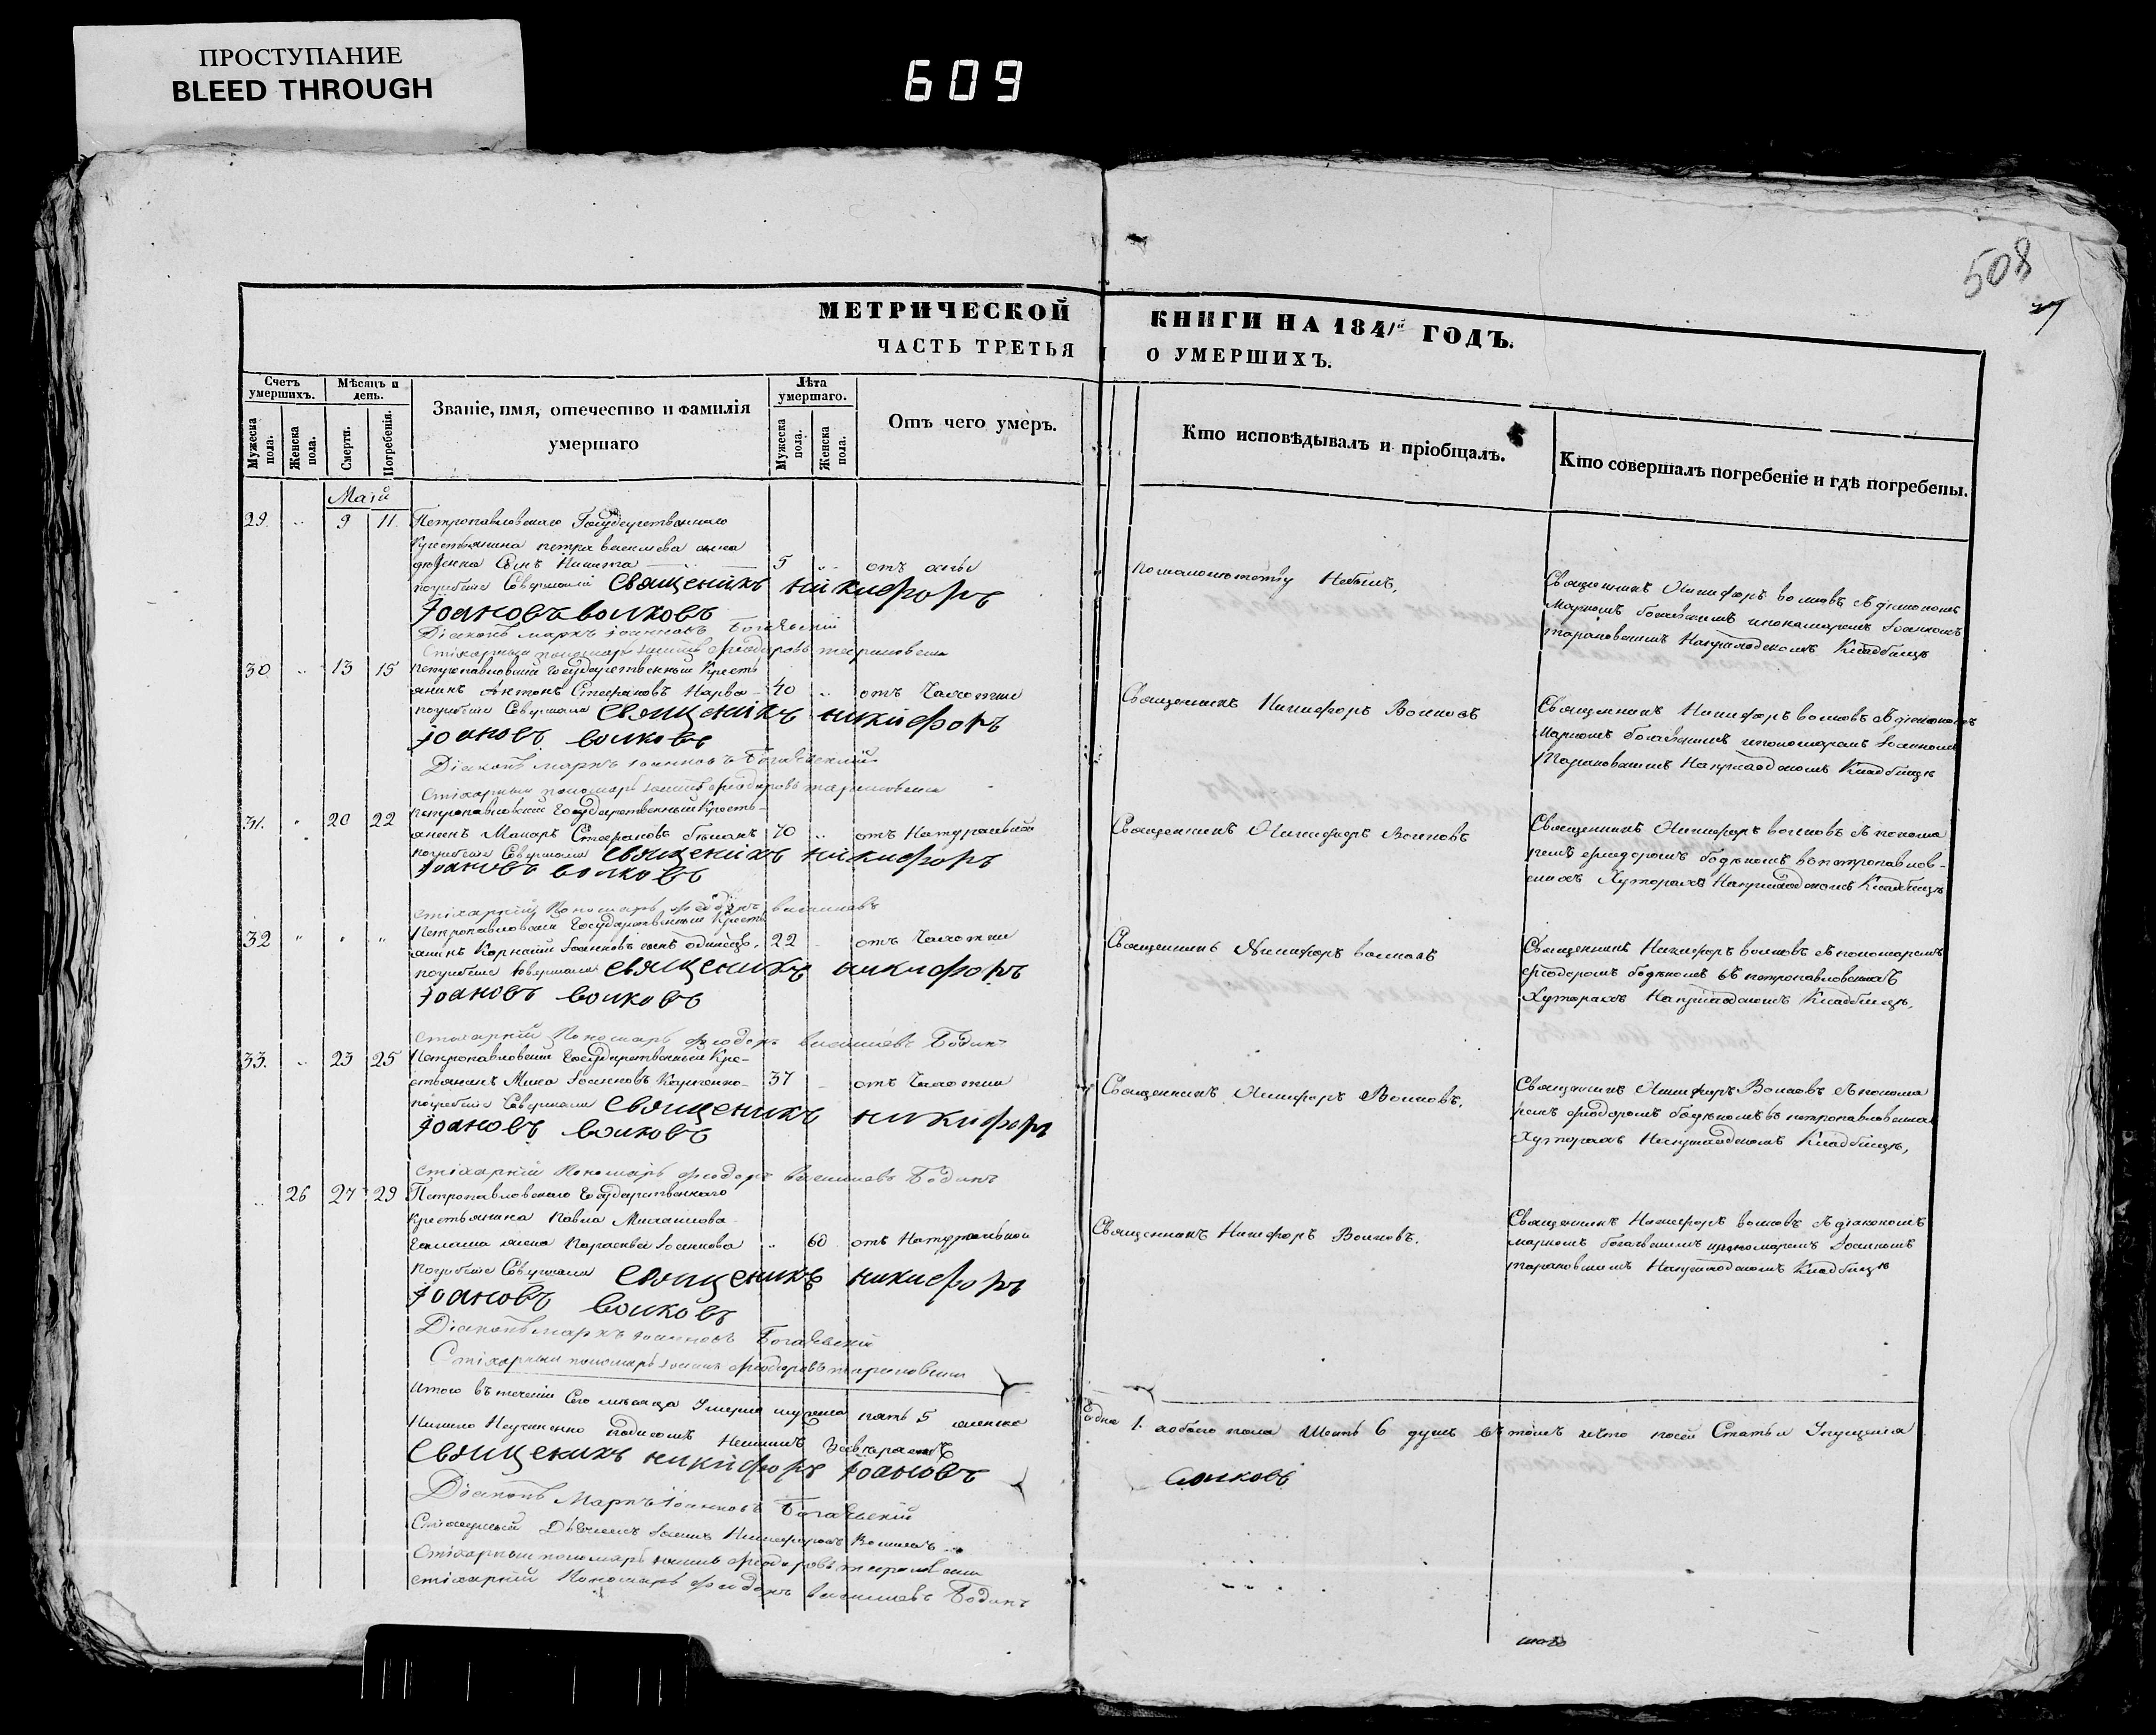 ПРОСТУПАНИЕ
BLEED THROUGH
609
508
МЕТРИЧЕСКОЙ КНИГИ НА 1841й ГОДЪ.
ЧАСТЬ ТРЕТЬЯ О УМЕРШИХЪ.
Счетъ умершихъ.
Мужеска пола.
Женска пола.
Мѣсяцъ и день.
Смерти.
Погребенія.
Званіе, имя, отечество и фамилія умершаго
Лѣта умершаго.
Мужеска пола.
Женска пола.
Отъ чего умеръ.
Кто исповѣдывалъ и пріобщалъ.
Кто совершалъ погребеніе и гдѣ погребены.
Маій
29. 9 11. Петропавловскаго Государственнаго
Крестьянина петра васильева
Сынъ Никита 5 отъ оспы
погребеніе Совершали Священикъ никифоръ
Іоановъ волковъ
Діаконъ маркъ іоанновъ Богаѣвскій
Стихарный пономарь іоаннъ феодоровъ тарановскій
По малолетству Небылъ.
Священникъ Никифоръ волковъ съ діакономъ
Маркомъ богаѣвскимъ ипономаремъ Іоанномъ
тарановскимъ Наприходскомъ Кладбищѣ
30 13 15 петропавловскій Государственный Кресть
янинъ Антонъ Стефановъ 40 отъ Чахотки
погребеніе Совершали священикъ никифоръ
іоановъ волковъ
Діаконъ маркъ іоанновъ Богаѣвскій
Стихарный пономарь іоаннъ феодоровъ тарановскій
Священникъ Никифоръ Волковъ
Священникъ Никифоръ волковъ съ діакономъ
Маркомъ богаѣвскимъ ипономаремъ Іоанномъ
Тарановскимъ Наприходскомъ Кладбищѣ
31. 20 22 петропавловскій Государственный Кресть-
янинъ Макаръ Стефановъ 70 отъ Натуральной
погребеніе Совершали священикъ никифоръ
іоановъ волковъ
стихарній Пономарь феодоръ василиевъ
Священникъ Никифоръ Волковъ
Священникъ Никифоръ волковъ съ понома
ремъ феодоромъ бодякомъ вопетропавлов-
скихъ Хуторахъ Наприходскомъ Кладбищѣ
32 Петропавловскій Государственный Кресть
янинъ Корнилій Іоанновъ 22 отъ Чахотки
погребеніе Совершали священикъ никифоръ
іоановъ волковъ
стихарній Пономарь феодоръ василиевъ
Священникъ Никифоръ волковъ
Священникъ Никифоръ волковъ съ пономаремъ
феодоромъ бодякомъ въ петропавловскихъ
Хуторахъ Наприходскомъ Кладбищѣ,
33. 23 25 Петропавловскій Государственный Кре-
стьянинъ Мина Іоанновъ 37 отъ Чахотки
погребеніе Совершали Священикъ никифоръ
іоановъ волковъ
стихарній Пономарь феодоръ василиевъ
Священникъ Никифоръ Волковъ.
Священникъ Никифоръ Волковъ съ понома
ремъ феодоромъ бодякомъ въ петропавловскихъ
Хуторахъ Наприходскомъ Кладбищѣ,
26 27 29 Петропавловскаго Государственнаго
Крестьянина Павла Михаилова
жена Параскева Іоаннова 60 отъ Натуральной
Погребеніе Совершали Священикъ никифоръ
іоановъ волковъ
Діаконъ маркъ іоанновъ Богаѣвскій
Стихарный пономарь іоаннъ феодоровъ тарановскій
Священникъ Никифоръ Волковъ.
Священникъ Никифоръ волковъ съ діакономъ
маркомъ богаѣвскимъ ипономаремъ Іоанномъ
тарановскимъ Наприходскомъ Кладбищѣ
Итого въ теченіи Сего мѣсяца Умерло мужеска пять 5 женска одна 1. обоего пола Шесть 6 душъ въ томъ что посей Статьи Упущенія
Никого Неучинено подписомъ
Священикъ никифоръ іоановъ волковъ
Діаконъ Маркъ іоанновъ Богаѣвскій
Стихарный Дьячекъ Іоаннъ Никифоровъ Волковъ
Стихарный пономарь іоаннъ феодоровъ тарановскій
стихарній Пономарь феодоръ василиевъ